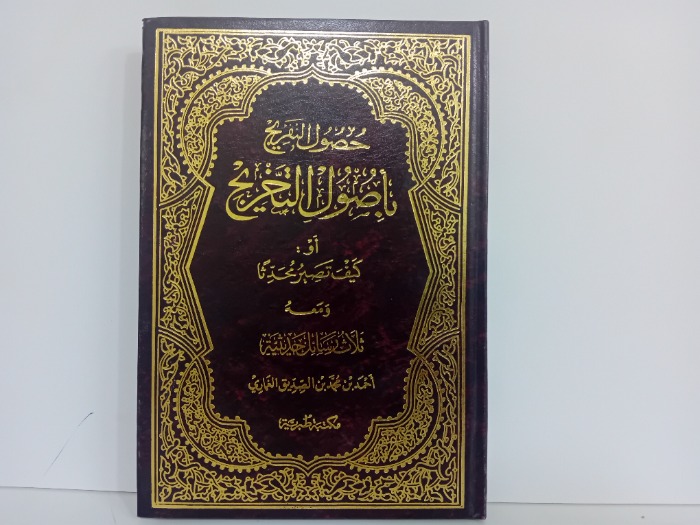 حُصُولُ التَّفْرِيجِ
بِأُصُولِ التَّخْرِيجِ
أَوْ :
كَيْفَ تَصِيرُ مُحَدِّثًا
وَمَعَهُ
ثَلَاثُ رَسَائِلَ حَدِيثِيَّةٍ
أحمد بن محمد بن الصديق الغماري
مكتبة طبرية